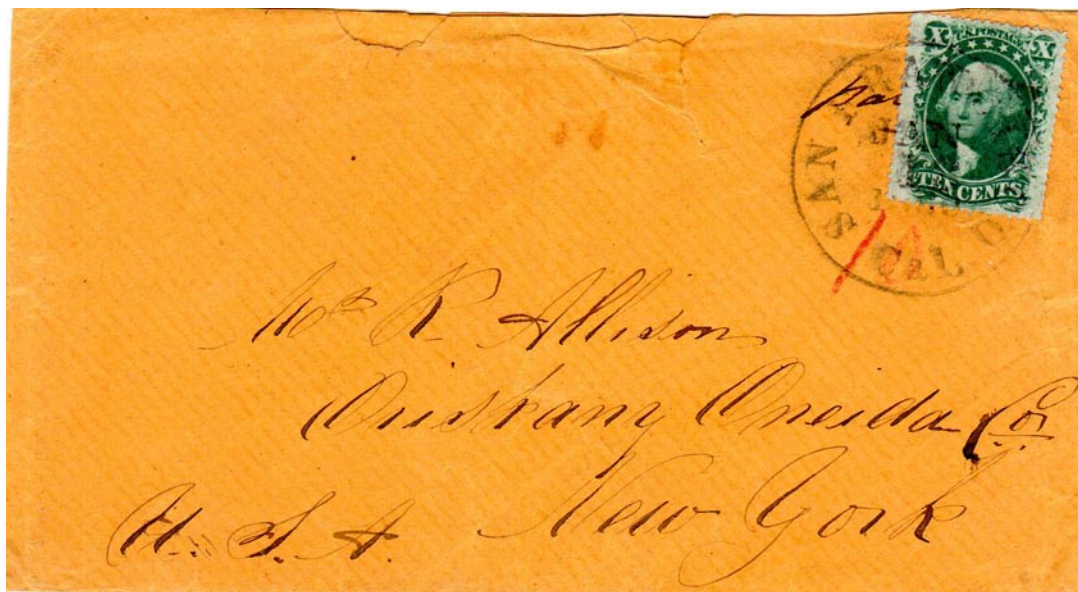 X U.S. POSTAGE X
TEN CENTS.
SAN
CAL
R Allison
Oriskany Oneida Co.
New York
U. S. A.